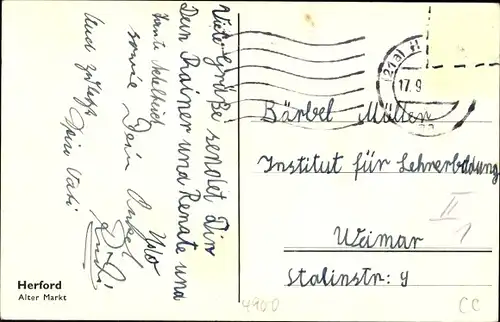 Viele Grüße sendet Dir
Dein Rainer und Renate und
Tante
sowie Dein Onkel
Und zuletzt
Deine
Rudi
Herford
Alter Markt
(21a)
17.9
Bärbel Müller
Institut für Lehrerbildung
II
1
Weimar
Stalinstr: 9
4900
CC